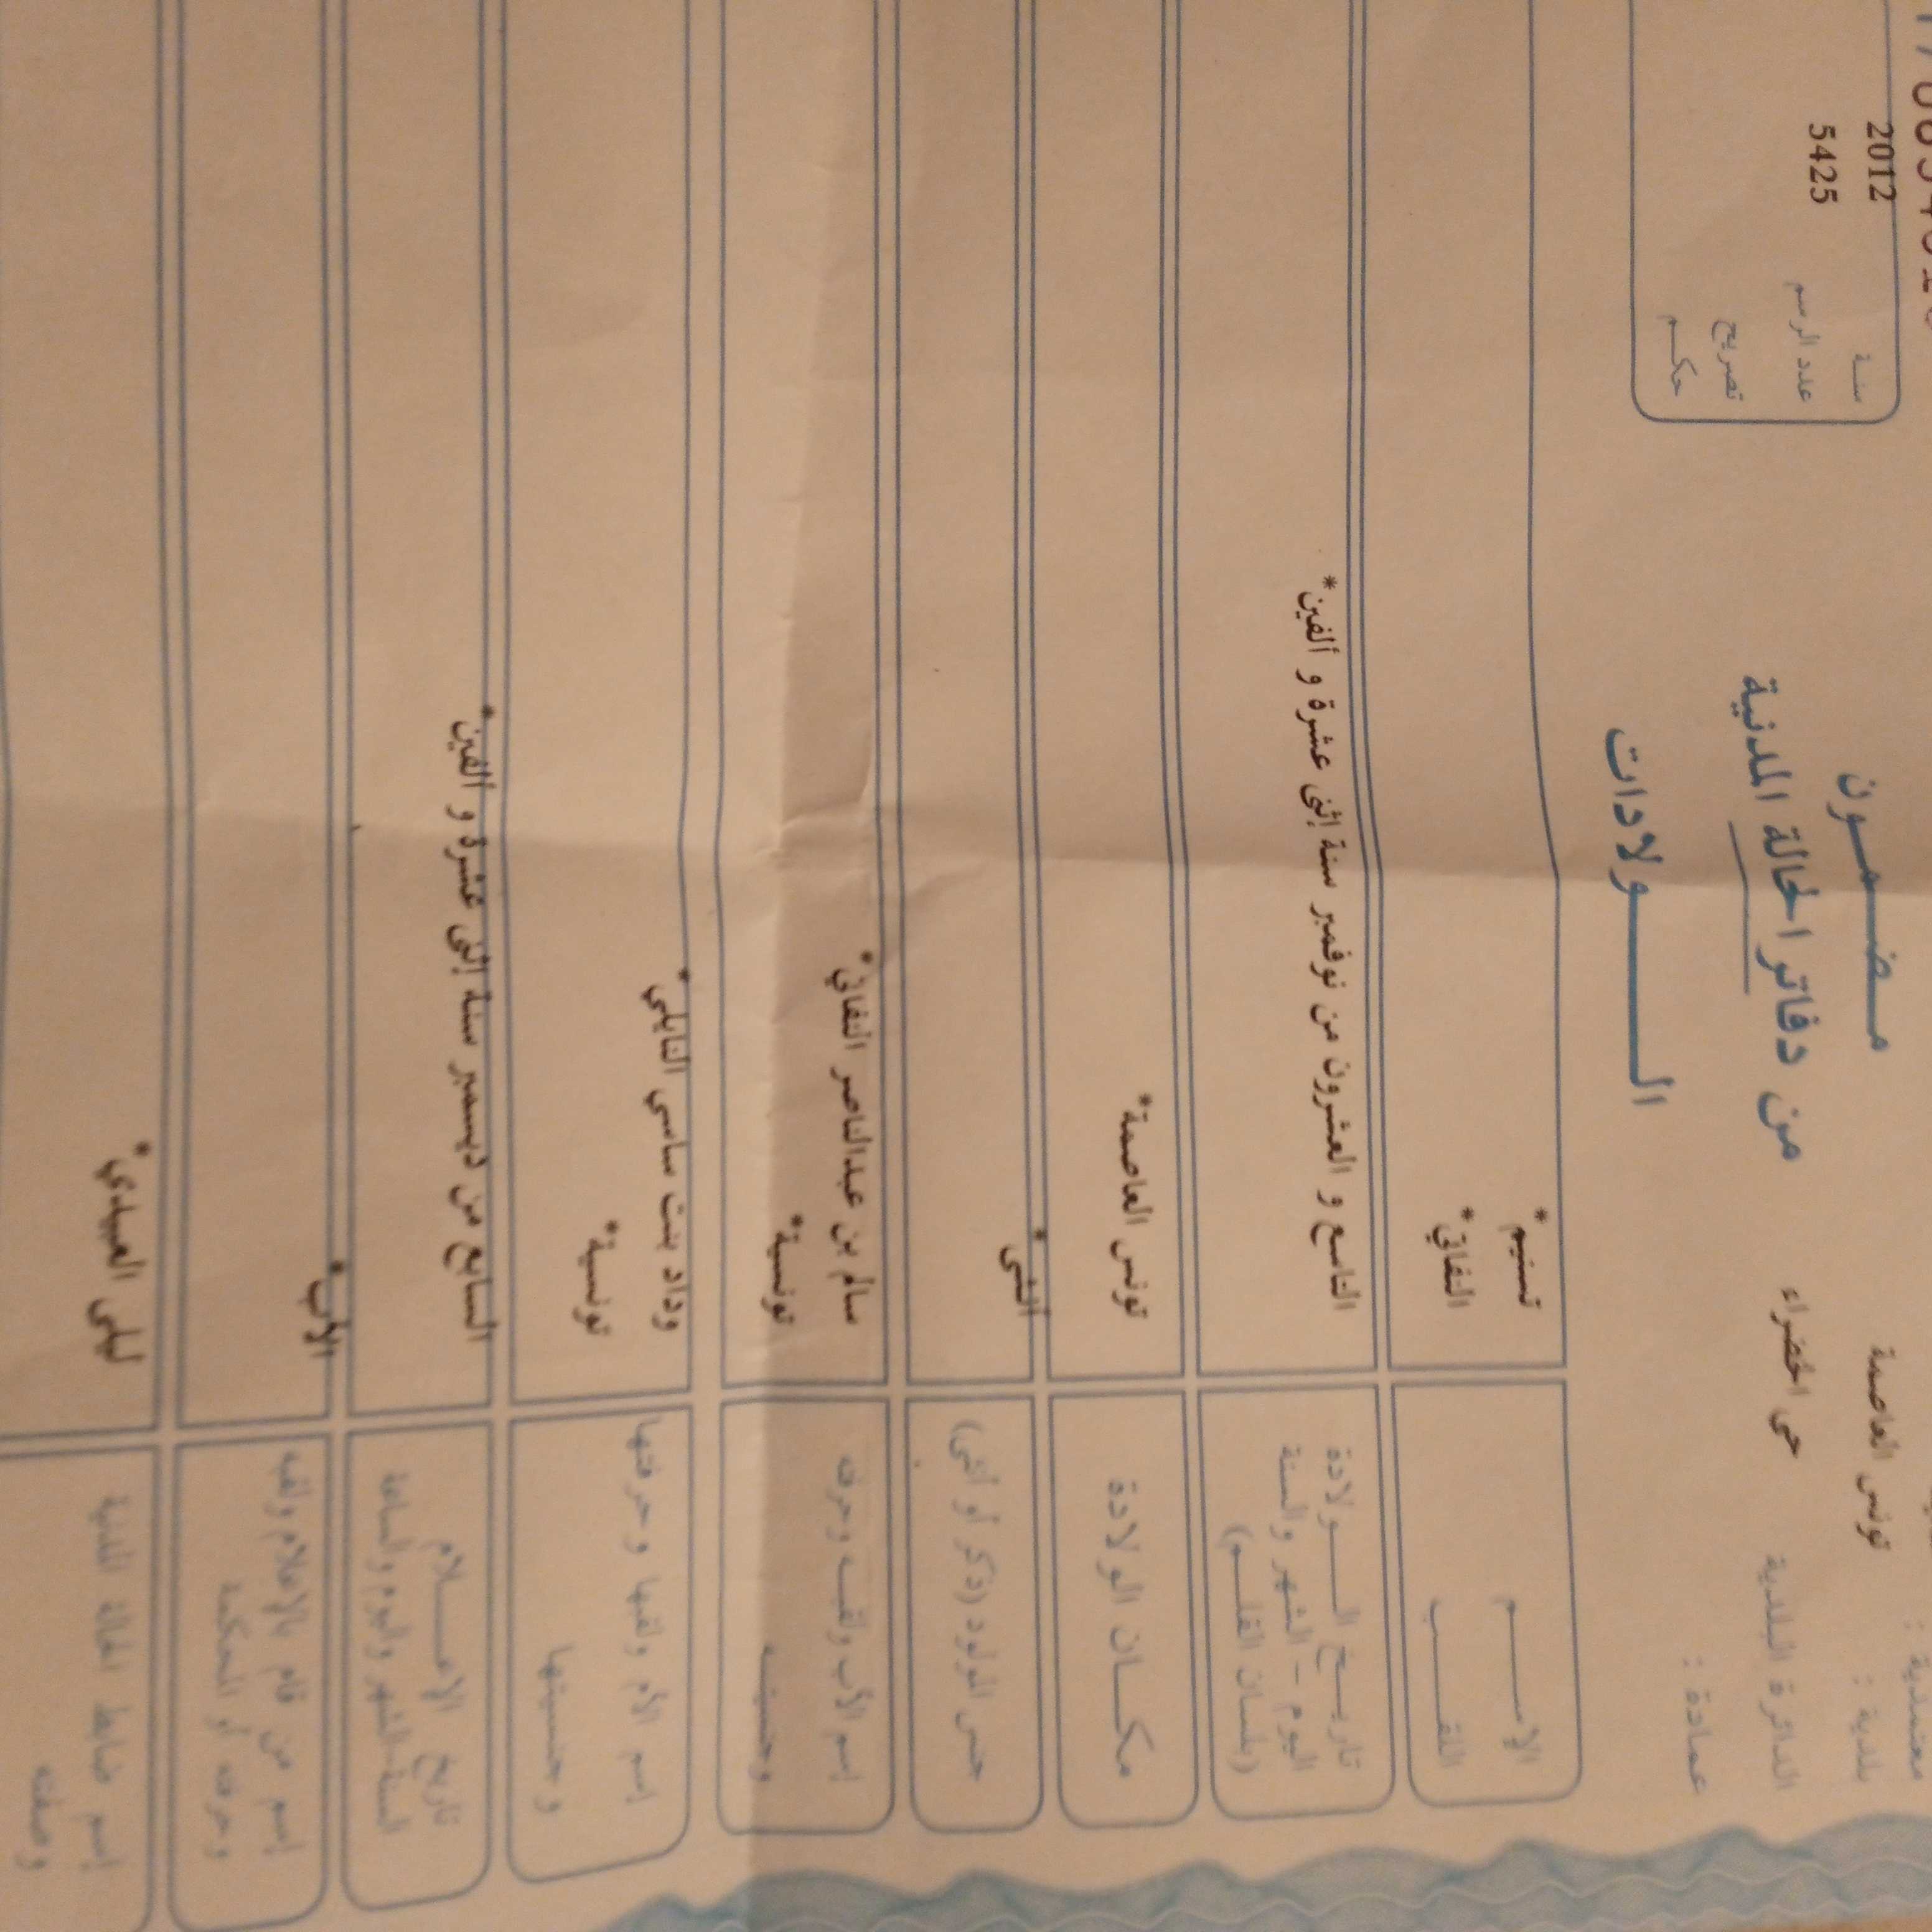 معتمدية :
بلدية : تونس العاصمة
الدائرة البلدية حى الخضراء
عمادة :
مضمون
من دفاتر الحالة المدنية
الولادات
سنة 2012
عدد الرسم 5425
تصريح
حكم
الاسم تسنيم*
اللقب النفاتي*
تاريخ الولادة
اليوم - الشهر والسنة
(بلسان القلم)
التاسع و العشرون من نوفمبر سنة إثنى عشرة و ألفين*
مكان الولادة تونس العاصمة*
جنس المولود (ذكر أو أنثى) انثى*
إسم الأب ولقبه وحرفته سالم بن عبدالناصر النفاتي*
وجنسيته تونسية*
إسم الأم ولقبها وحرفتها وداد بنت ساسي النايلي*
وجنسيتها تونسية*
تاريخ الإعلام
السنة-الشهر واليوم والساعة
السابع من ديسمبر سنة إثنى عشرة و الفين*
إسم من قام بالإعلام ولقبه
وحرفته أو المحكمة
الأب*
إسم ضابط الحالة المدنية
وصفته
ليلى العبيدي*